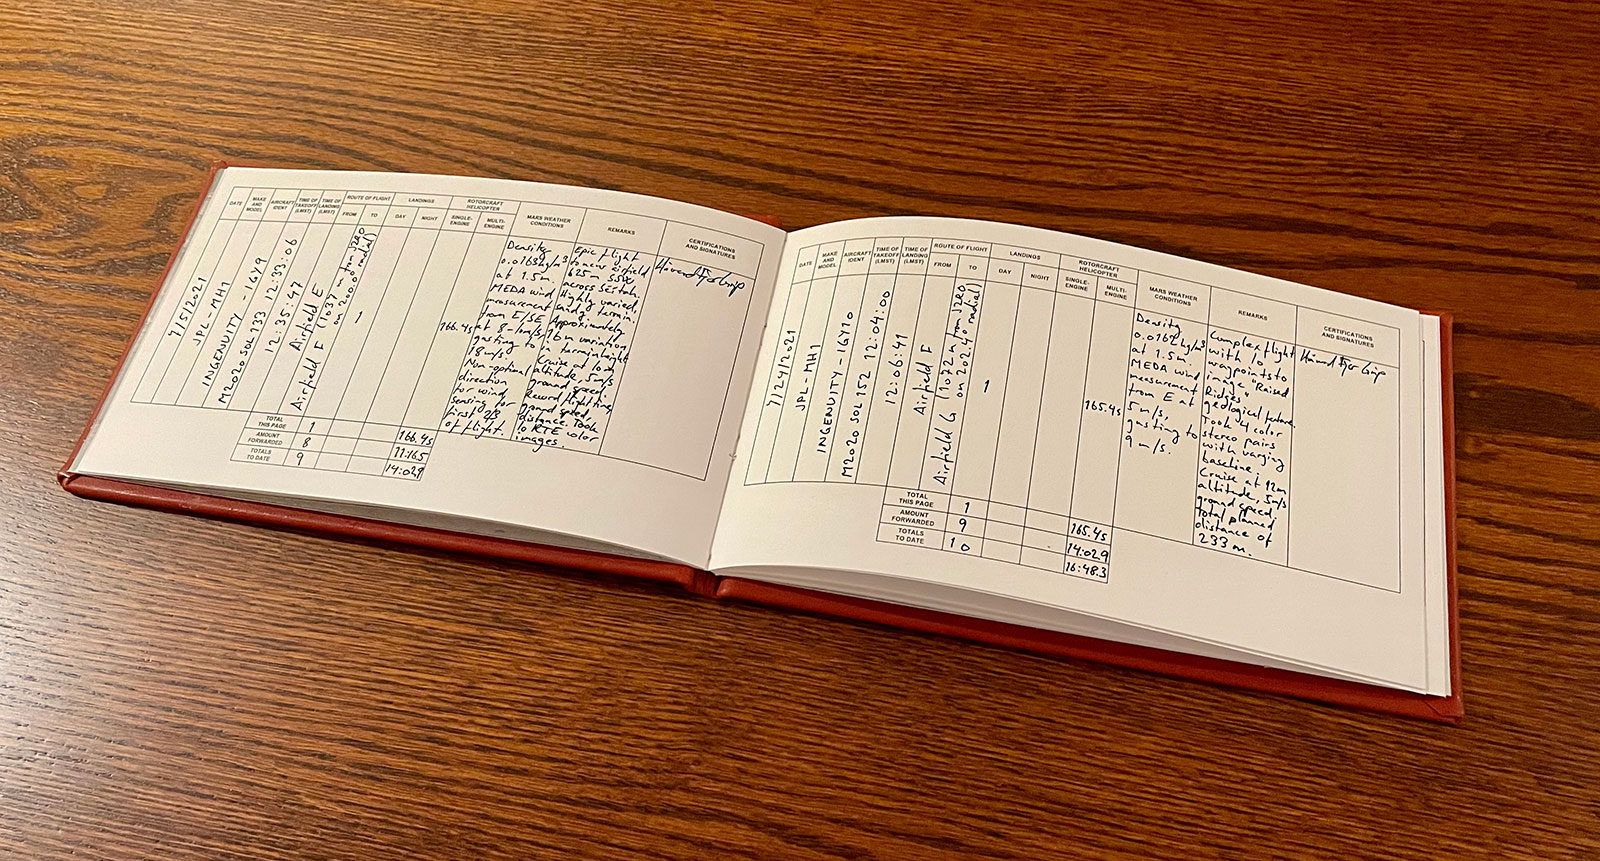 DATE
MAKE AND MODEL
AIRCRAFT IDENT
TIME OF TAKEOFF (LMST)
TIME OF LANDING (LMST)
ROUTE OF FLIGHT
FROM
TO
LANDINGS
DAY
NIGHT
ROTORCRAFT HELICOPTER
SINGLE-ENGINE
MULTI-ENGINE
MARS WEATHER CONDITIONS
REMARKS
CERTIFICATIONS AND SIGNATURES
7/5/2021
JPL-MH1
INGENUITY - IGY9
M2020 SOL 133 12:33:06
12:35:47
Airfield E
Airfield F (1037 m from JZRO
on 200.00° radial)
1
166.4s
Density
0.0163kg/m³
at 1.5m.
MEDA wind
measurement
from E/SE
at 8-10m/s,
gusting to
18m/s.
Non-optimal
direction
for wind
sensing for
first 2/3
of flight.
Epic flight
to new airfield
625m SSW,
across Séítah.
Highly varied,
sandy terrain.
Approximately
16m variation
in terrain height
Cruise at 10m
altitude, 5m/s
ground speed.
Record flight time,
ground speed,
distance. Took
10 RTE color
images.
Håvard Fjær Grip
TOTAL THIS PAGE 1 166.4s
AMOUNT FORWARDED 8 11:16.5
TOTALS TO DATE 9 14:02.9
DATE
MAKE AND MODEL
AIRCRAFT IDENT
TIME OF TAKEOFF (LMST)
TIME OF LANDING (LMST)
ROUTE OF FLIGHT
FROM
TO
LANDINGS
DAY
NIGHT
ROTORCRAFT HELICOPTER
SINGLE-ENGINE
MULTI-ENGINE
MARS WEATHER CONDITIONS
REMARKS
CERTIFICATIONS AND SIGNATURES
7/24/2021
JPL-MH1
INGENUITY - IGY10
M2020 SOL 152 12:04:00
12:06:41
Airfield F
Airfield G (1072m from JZRO
on 202.4° radial)
1
165.4s
Density
0.0162kg/m³
at 1.5m
MEDA wind
measurement
from E at
5m/s,
gusting to
9m/s.
Complex flight
with 10
waypoints to
image "Raised
Ridges"
geological feature.
Took 4 color
stereo pairs
with varying
baseline.
Cruise at 12m
altitude, 5m/s
ground speed.
Total planned
distance of
233 m.
Håvard Fjær Grip
TOTAL THIS PAGE 1 165.4s
AMOUNT FORWARDED 9 14:02.9
TOTALS TO DATE 10 16:48.3